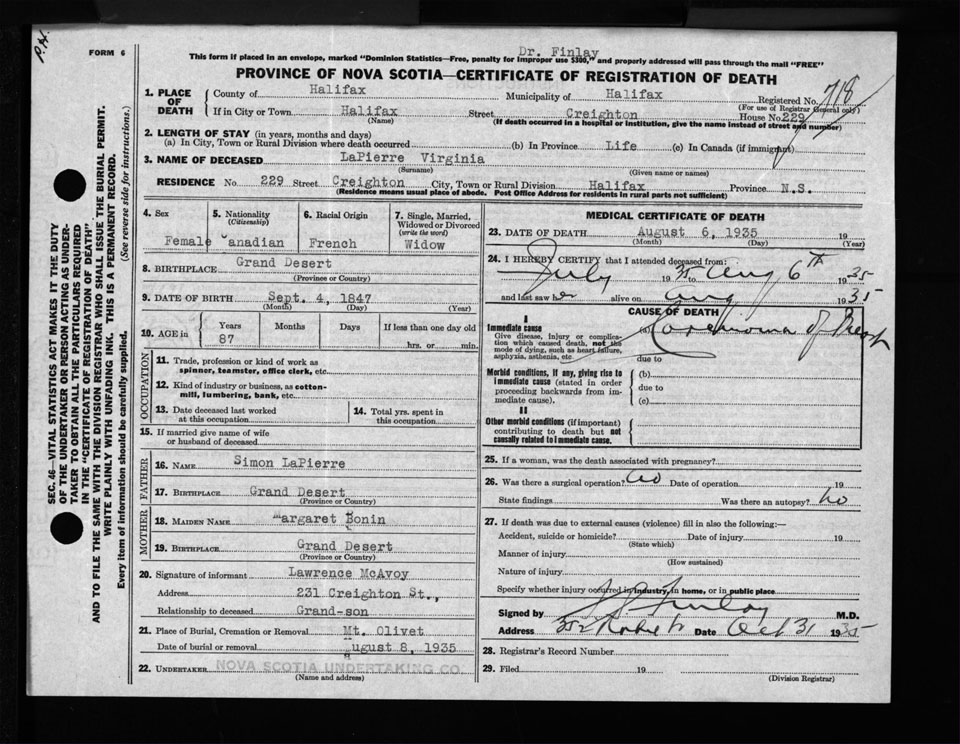 P.H.
FORM 6
Dr. Finlay
This form if placed in an envelope, marked "Dominion Statistics—Free, penalty for improper use $300," and properly addressed will pass through the mail "FREE"
PROVINCE OF NOVA SCOTIA—CERTIFICATE OF REGISTRATION OF DEATH
SEC. 46—VITAL STATISTICS ACT MAKES IT THE DUTY
OF THE UNDERTAKER OR PERSON ACTING AS UNDER-
TAKER TO OBTAIN ALL THE PARTICULARS REQUIRED
IN THE "CERTIFICATE OF REGISTRATION OF DEATH"
AND TO FILE THE SAME WITH THE DIVISION REGISTRAR WHO SHALL ISSUE THE BURIAL PERMIT.
WRITE PLAINLY WITH UNFADING INK. THIS IS A PERMANENT RECORD.
Every item of information should be carefully supplied. (See reverse side for instructions.)
1. PLACE OF DEATH
County of Halifax Municipality of Halifax Registered No. 718
(For use of Registrar General only)
If in City or Town Halifax Street Creighton House No. 229
(Name) (If death occurred in a hospital or institution, give the name instead of street and number)
2. LENGTH OF STAY (in years, months and days)
(a) In City, Town or Rural Division where death occurred (b) In Province Life (c) In Canada (if immigrant)
3. NAME OF DECEASED LaPierre Virginia
(Surname) (Given name or names)
RESIDENCE No 229 Street Creighton City, Town or Rural Division Halifax Province N.S.
(Residence means usual place of abode. Post Office Address for residents in rural parts not sufficient)
4. Sex 5. Nationality (Citizenship) 6. Racial Origin 7. Single, Married, Widowed or Divorced (write the word)
Female Canadian French Widow
8. BIRTHPLACE Grand Desert
(Province or Country)
9. DATE OF BIRTH Sept. 4, 1847
(Month) (Day) (Year)
10. AGE in Years Months Days If less than one day old
87 hrs. or min.
OCCUPATION
11. Trade, profession or kind of work as
spinner, teamster, office clerk, etc.
12. Kind of industry or business, as cotton-
mill, lumbering, bank, etc.
13. Date deceased last worked
at this occupation
14. Total yrs. spent in
this occupation
15. If married give name of wife
or husband of deceased
FATHER
16. NAME Simon LaPierre
17. BIRTHPLACE Grand Desert
(Province or Country)
MOTHER
18. MAIDEN NAME Margaret Bonin
19. BIRTHPLACE Grand Desert
(Province or Country)
20. Signature of informant Lawrence McAvoy
Address 231 Creighton St.,
Relationship to deceased Grand-son
21. Place of Burial, Cremation or Removal Mt. Olivet
Date of burial or removal August 8, 1935
22. UNDERTAKER NOVA SCOTIA UNDERTAKING CO.
(Name and address)
MEDICAL CERTIFICATE OF DEATH
23. DATE OF DEATH August 6, 1935 19
(Month) (Day) (Year)
24. I HEREBY CERTIFY that I attended deceased from:
July 1935 to Aug 6th 1935
and last saw her alive on Aug 1935
CAUSE OF DEATH
I
Immediate cause
Give disease, injury or complica-
tion which caused death, not the
mode of dying, such as heart failure,
asphyxia, asthenia, etc.
(a) Carcinoma of Breast
due to
Morbid conditions, if any, giving rise to
immediate cause (stated in order
proceeding backwards from im-
mediate cause).
(b)
due to
(c)
II
Other morbid conditions (if important)
contributing to death but not
causally related to immediate cause.
25. If a woman, was the death associated with pregnancy?
26. Was there a surgical operation? No Date of operation 19
State findings Was there an autopsy? No
27. If death was due to external causes (violence) fill in also the following:—
Accident, suicide or homicide? Date of injury 19
(State which)
Manner of injury
(How sustained)
Nature of injury
Specify whether injury occurred in industry, in home, or in public place
Signed by Finlay M.D.
Address 352 Robie St Date Oct 31 1935
28. Registrar's Record Number
29. Filed 19
(Division Registrar)